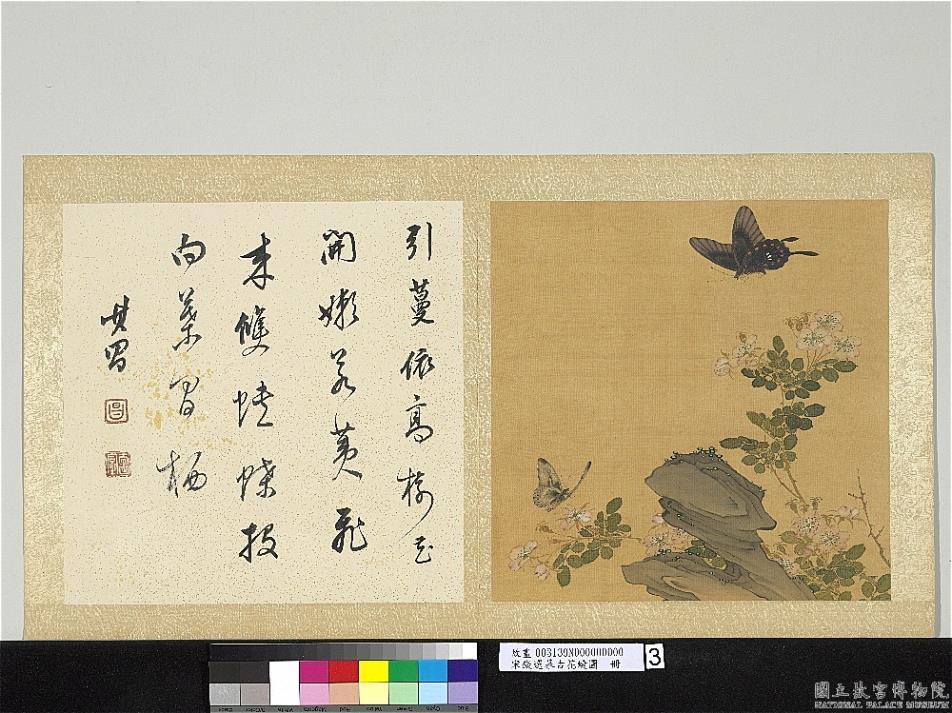 引蔓依高樹花
開嫩若荑飛
來雙蛺蝶投
向葉間栖
其昌
昌
故畫 003139N000000000
古花 圖 冊
3
國立故宮博物院
NATIONAL PALACE MUSEUM